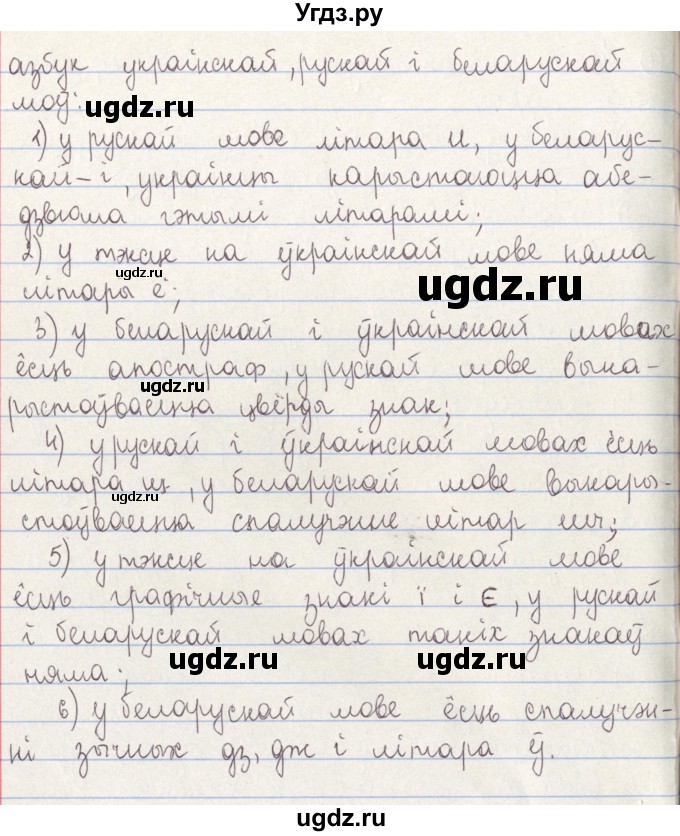 Угдз.ру
азбук украінскай, рускай і беларускай
моў:
1) у рускай мове літара и, у беларус-
кай - і, украінцы карыстаюцца абе-
дзвюма гэтымі літарамі;
2) у тэксце на ўкраінскай мове няма
літары ё;
3) у беларускай і ўкраінскай мовах
ёсць апостраф, у рускай мове выка-
рыстоўваецца цвёрды знак;
4) у рускай і ўкраінскай мовах ёсць
літара щ, у беларускай мове выкары-
стоўваецца спалучэнне літар шч;
5) у тэксце на ўкраінскай мове
ёсць графічныя знакі ї і є, у рускай
і беларускай мовах такіх знакаў
няма;
6) у беларускай мове ёсць спалучэн-
ні зычных дз, дж і літара ў.
ugdz.ru
ugdz.ru
ugdz.ru
ugdz.ru
ugdz.ru
ugdz.ru
ugdz.ru
ugdz.ru